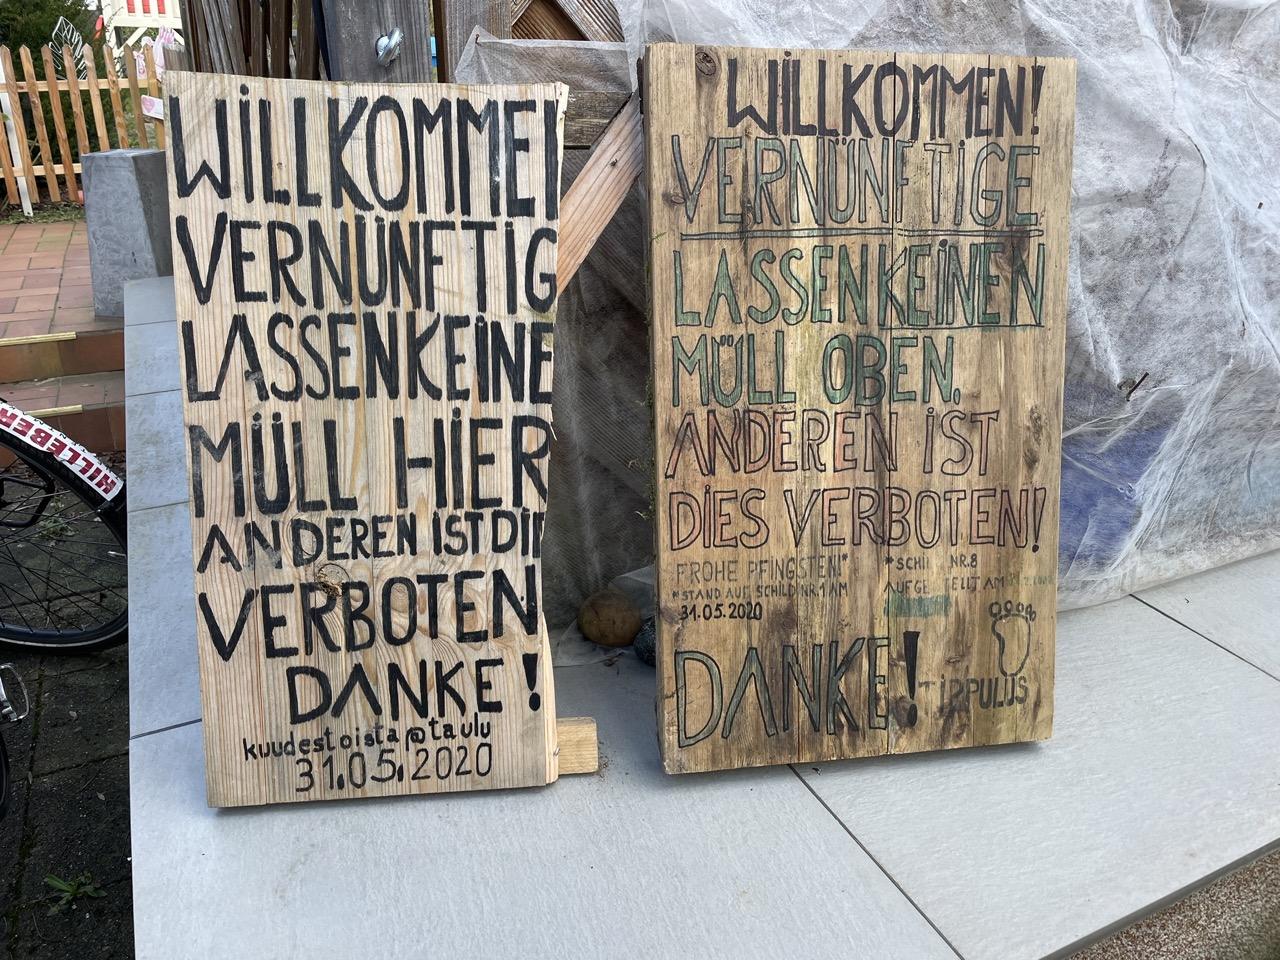 WILLKOMME
VERNÜNFTIG
LASSEN KEINE
MÜLL HIER
ANDEREN IST DIE
VERBOTEN
DANKE!
kuudestoista @ taulu
31.05.2020
WILLKOMMEN!
VERNÜNFTIGE
LASSEN KEINEN
MÜLL OBEN.
ANDEREN IST
DIES VERBOTEN!
FROHE PFINGSTEN!*
*STAND AUF SCHILD NR.1 AM
31.05.2020
NR.8
AM
DANKE!
TIPPULUS
KILLEBER